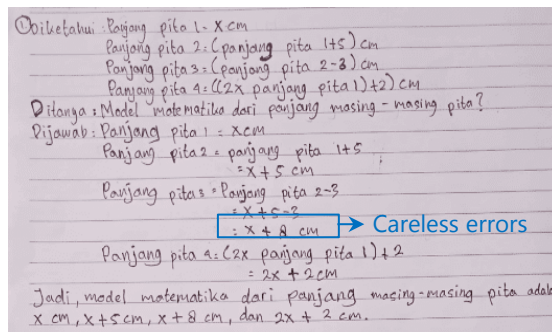 ① Diketahui : Panjang pita 1 = x cm
Panjang pita 2 = (panjang pita 1+5) cm
Panjang pita 3 = (panjang pita 2-3) cm
Panjang pita 4 = ((2x panjang pita 1)+2) cm
Ditanya : Model matematika dari panjang masing-masing pita?
Dijawab : Panjang pita 1 = x cm
Panjang pita 2 = panjang pita 1+5
= x + 5 cm
Panjang pita 3 = Panjang pita 2-3
= x + 5 - 3
= x + 8 cm
Careless errors
Panjang pita 4 = (2x panjang pita 1) + 2
= 2x + 2 cm
Jadi, model matematika dari panjang masing-masing pita adal
x cm, x + 5 cm, x + 8 cm, dan 2x + 2 cm.